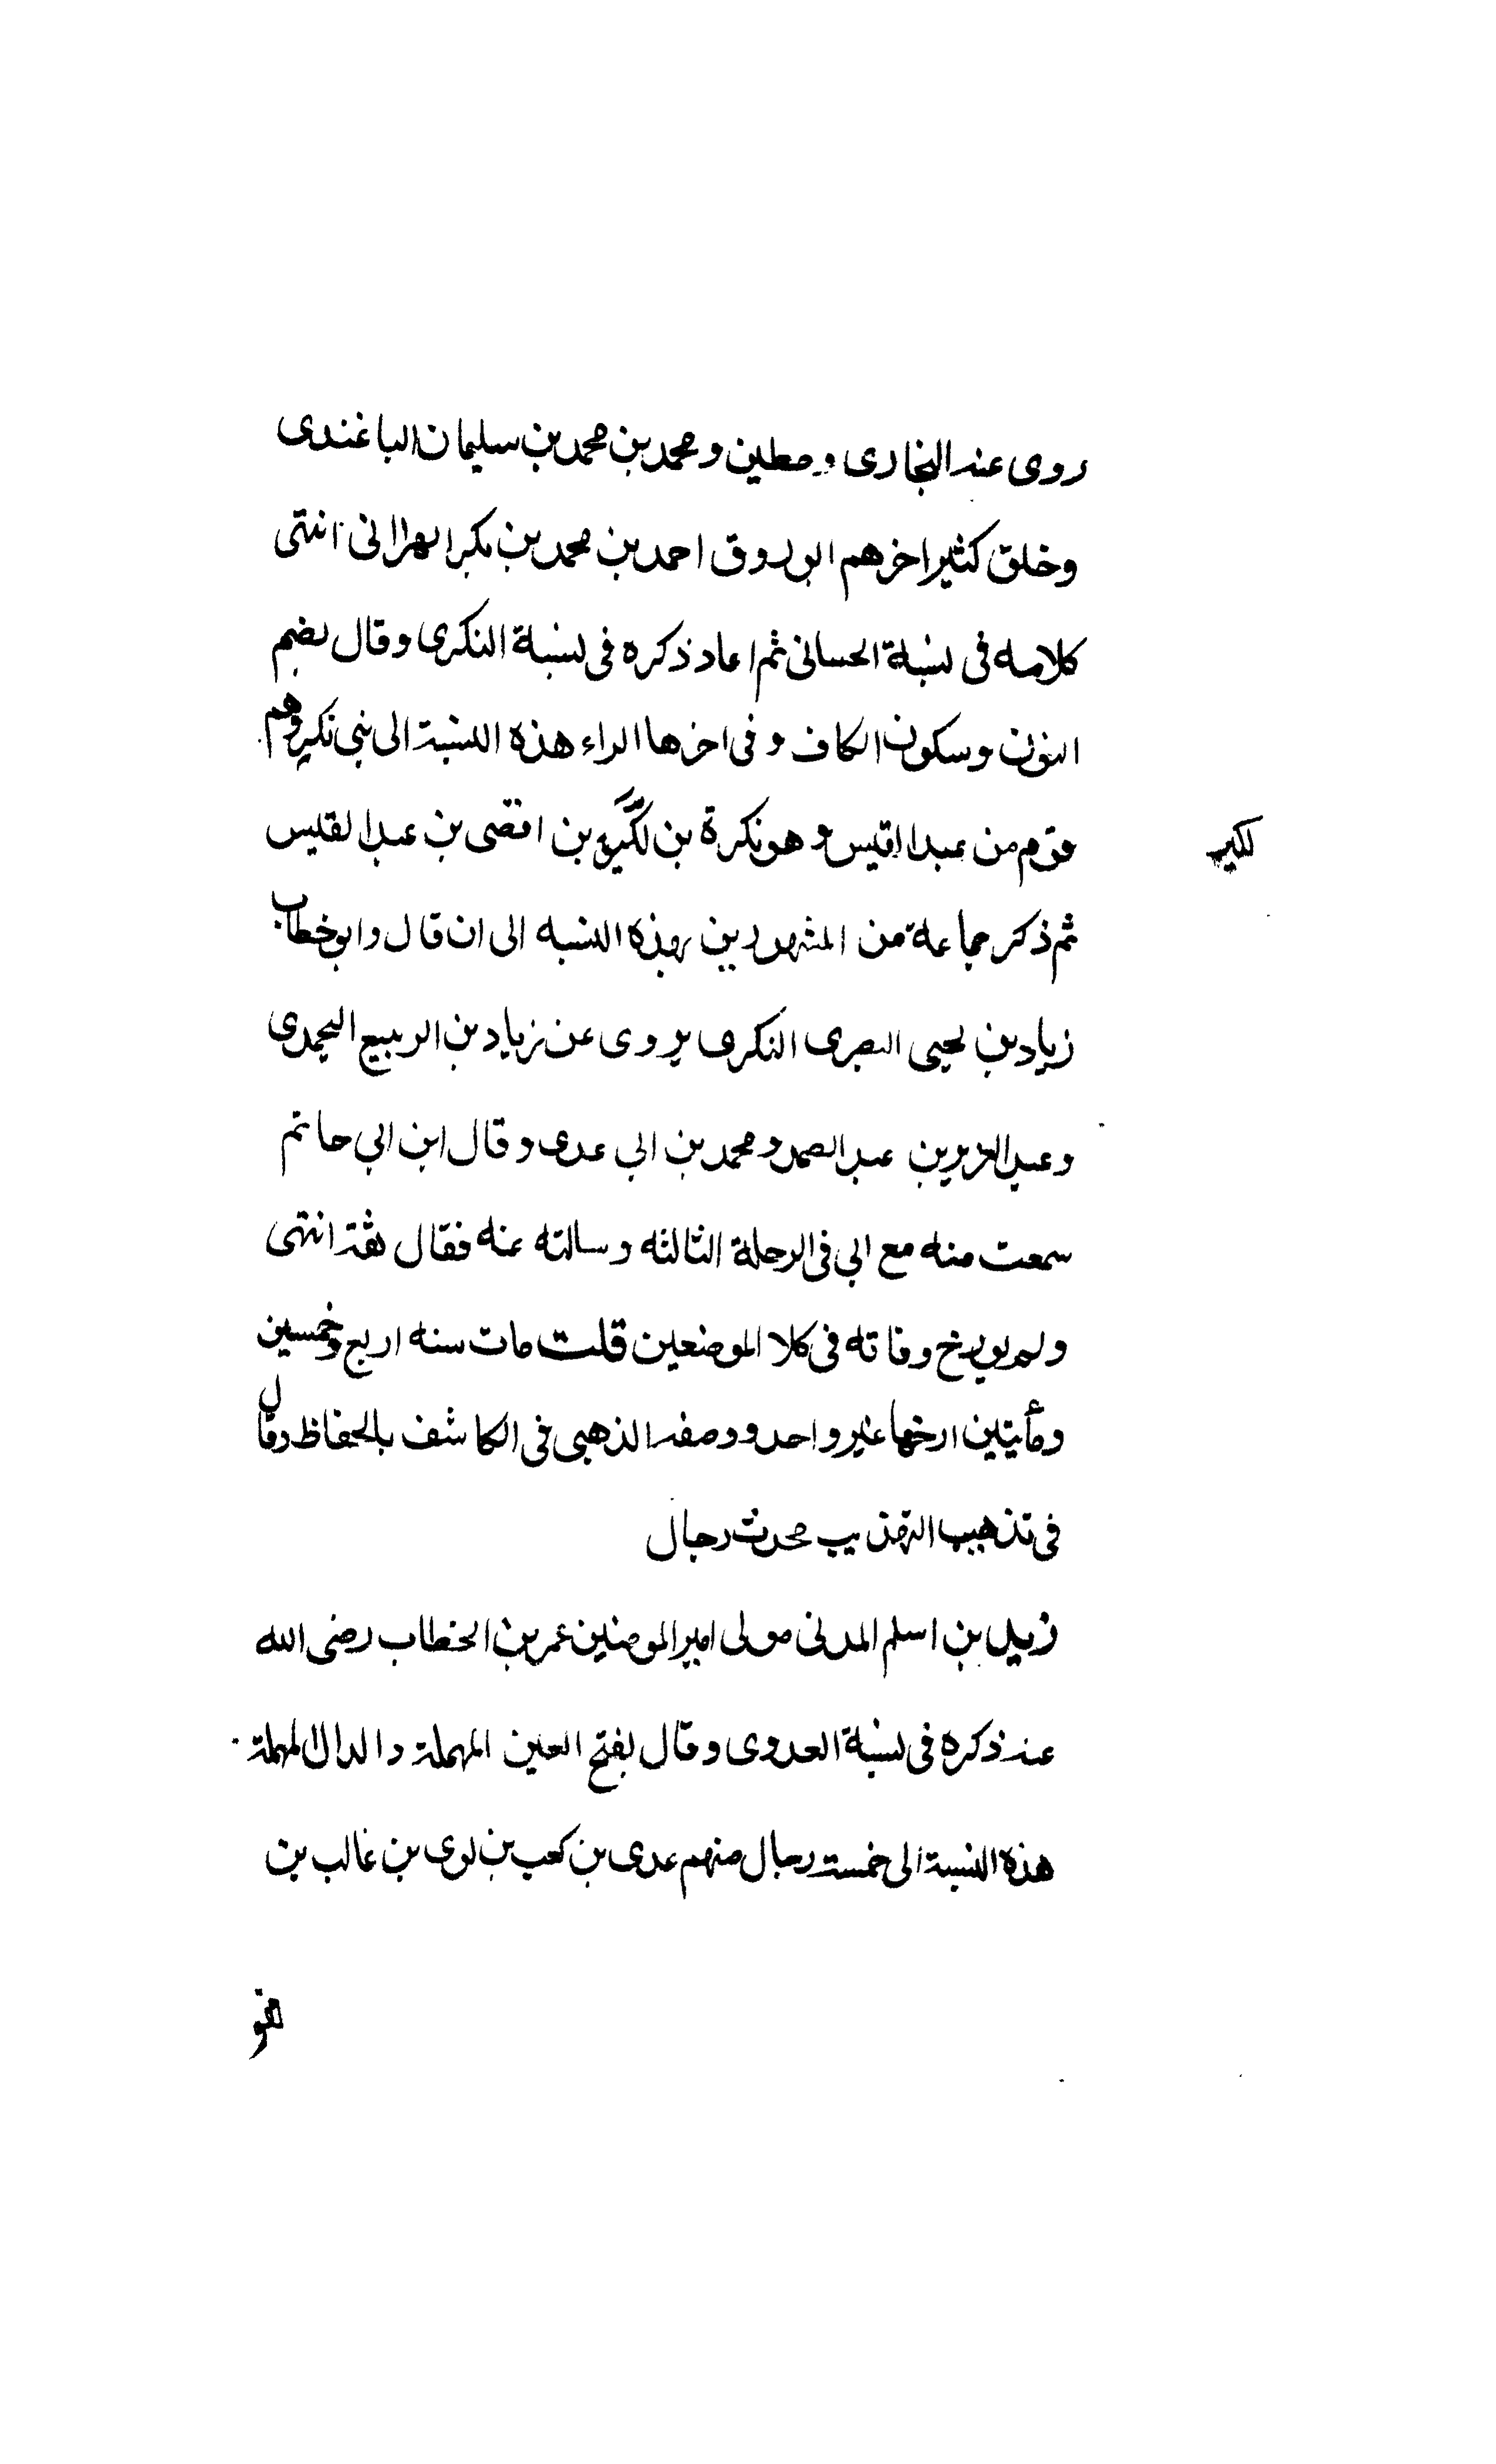 روى عنه البخارى ومطين و محمد بن محمد بن سليمان الباغندى
وخلق كثير اخرهم ابو روق احمد بن محمد بن بكر الهزانى انتهى
كلامه فى نسبة الحسانى ثم اعاد ذكره فى نسبة النكرى وقال بضم
النون وسكون الكاف وفى اخرها الراء هذه النسبة الى بنى نكير وهم
قوم من عبد القيس وهو نكرة بن لكيز بن افصى بن عبد القيس
لكيز
ثم ذكر جماعة من المشهورين بهذه النسبه الى ان قال وابو خطاب
زياد بن يحيى البصرى النكرى يروى عن زياد بن الربيع اليحمدى
وعبد العزيز بن عبد الصمد و محمد بن ابى عدى وقال ابن ابى حاتم
سمعت منه مع ابى فى الرحلة الثالثه وسالته عنه فقال ثقة انتهى
ولم يورخ وفاته فى كلا الموضعين قلت مات سنه اربع وخمسين
ومأيتين ارخها غير واحد ووصفه الذهبى فى الكاشف بالحفاظ وقال
فى تذهيب التهذيب محدث رجال
زيد بن اسلم المدنى مولى امير المومنين عمر بن الخطاب رضى الله
عنه ذكره فى نسبة العدوى وقال بفتح العين المهملة والدال المهملة
هذه النسبة الى خمسة رجال منهم عدى بن كعب بن لوى بن غالب بن